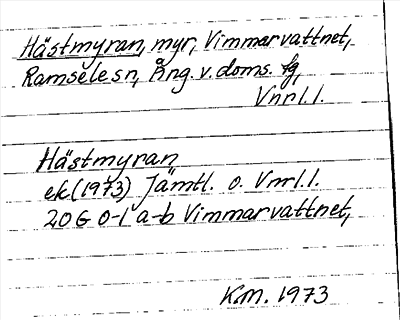 Hästmyran, myr, Vimmarvattnet,
Ramsele sn, Ång. v. doms. fg,
Vnrl.l.
Hästmyran
ek (1973) Jämtl. o. Vnrl.l.
20 G 0-1 a-b Vimmarvattnet,
KM. 1973